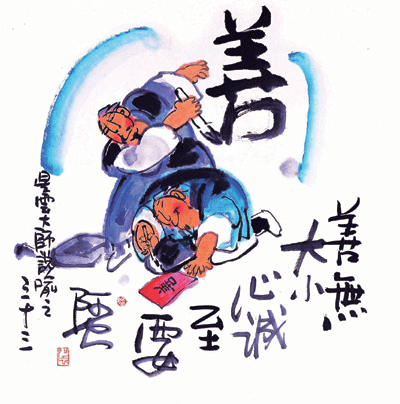 善
善無
大小
心誠
至
要
星雲大師
之三十三